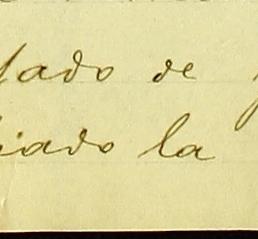 tado de
iado la